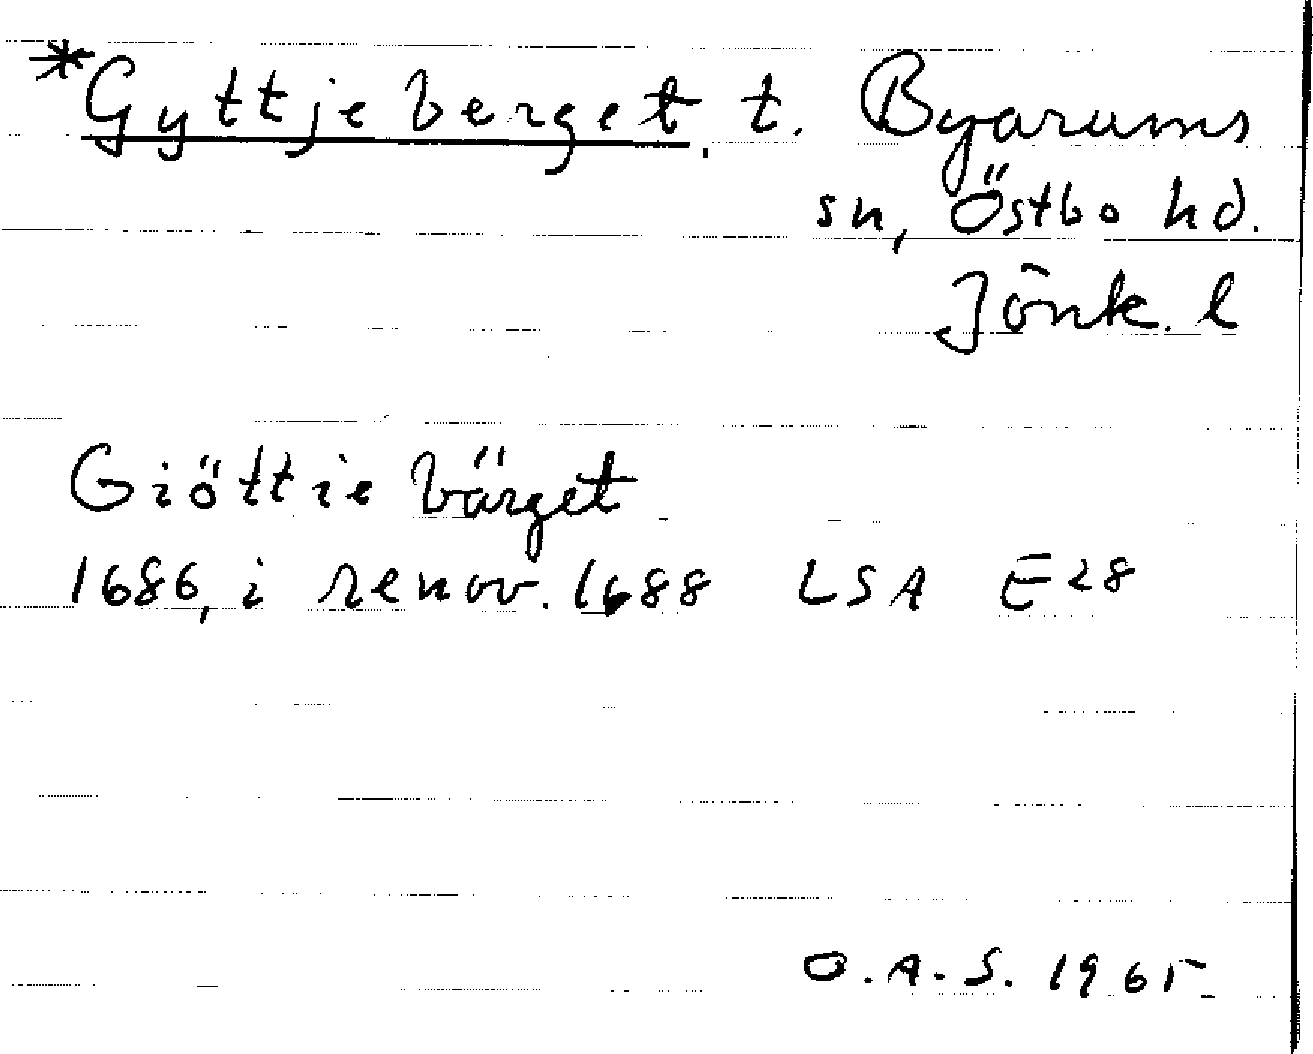 *Gyttjeberget. t. Byarums
sn, Östbo hd.
Jönk. l
Giöttie bärget
1686, i renov. 1688 LSA E28
O.A.S. 1965